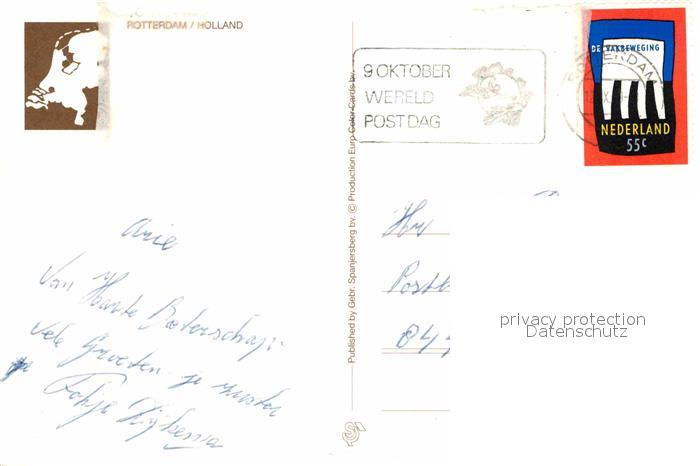 ROTTERDAM / HOLLAND
9 OKTOBER
WERELD
POSTDAG
DE VAKBEWEGING
NEDERLAND
55c
Published by Gebr. Spanjersberg bv. © Production Euro Color-Cards bv.
Arie
Van Harte Beterschap.
vele Groeten je zuster
Fokje Dijkema
Postb
844
privacy protection
Datenschutz